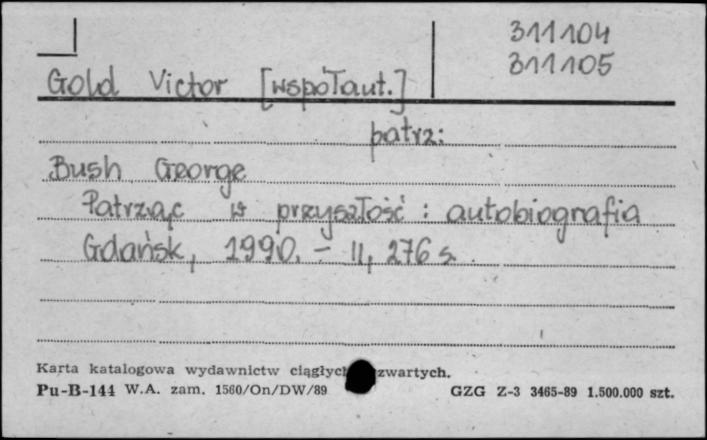 311104
311105
Gold Victor [wspołaut.]
patrz:
Bush George
Patrząc w przyszłość : autobiografia
Gdańsk, 1990. - II, 276 s.
Karta katalogowa wydawnictw ciągłych zwartych.
Pu-B-144 W.A. zam. 1560/On/DW/89 GZG Z-3 3465-89 1.500.000 szt.